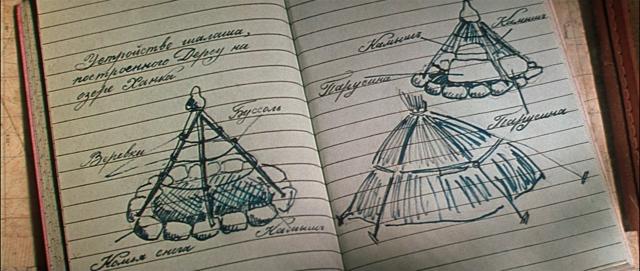 Устройство шалаша,
построенного Дерсу на
озере Ханка
Буссоль
Веревки
Камыш
Комья снега
Камыш
Камыш
Парусина
Парусина